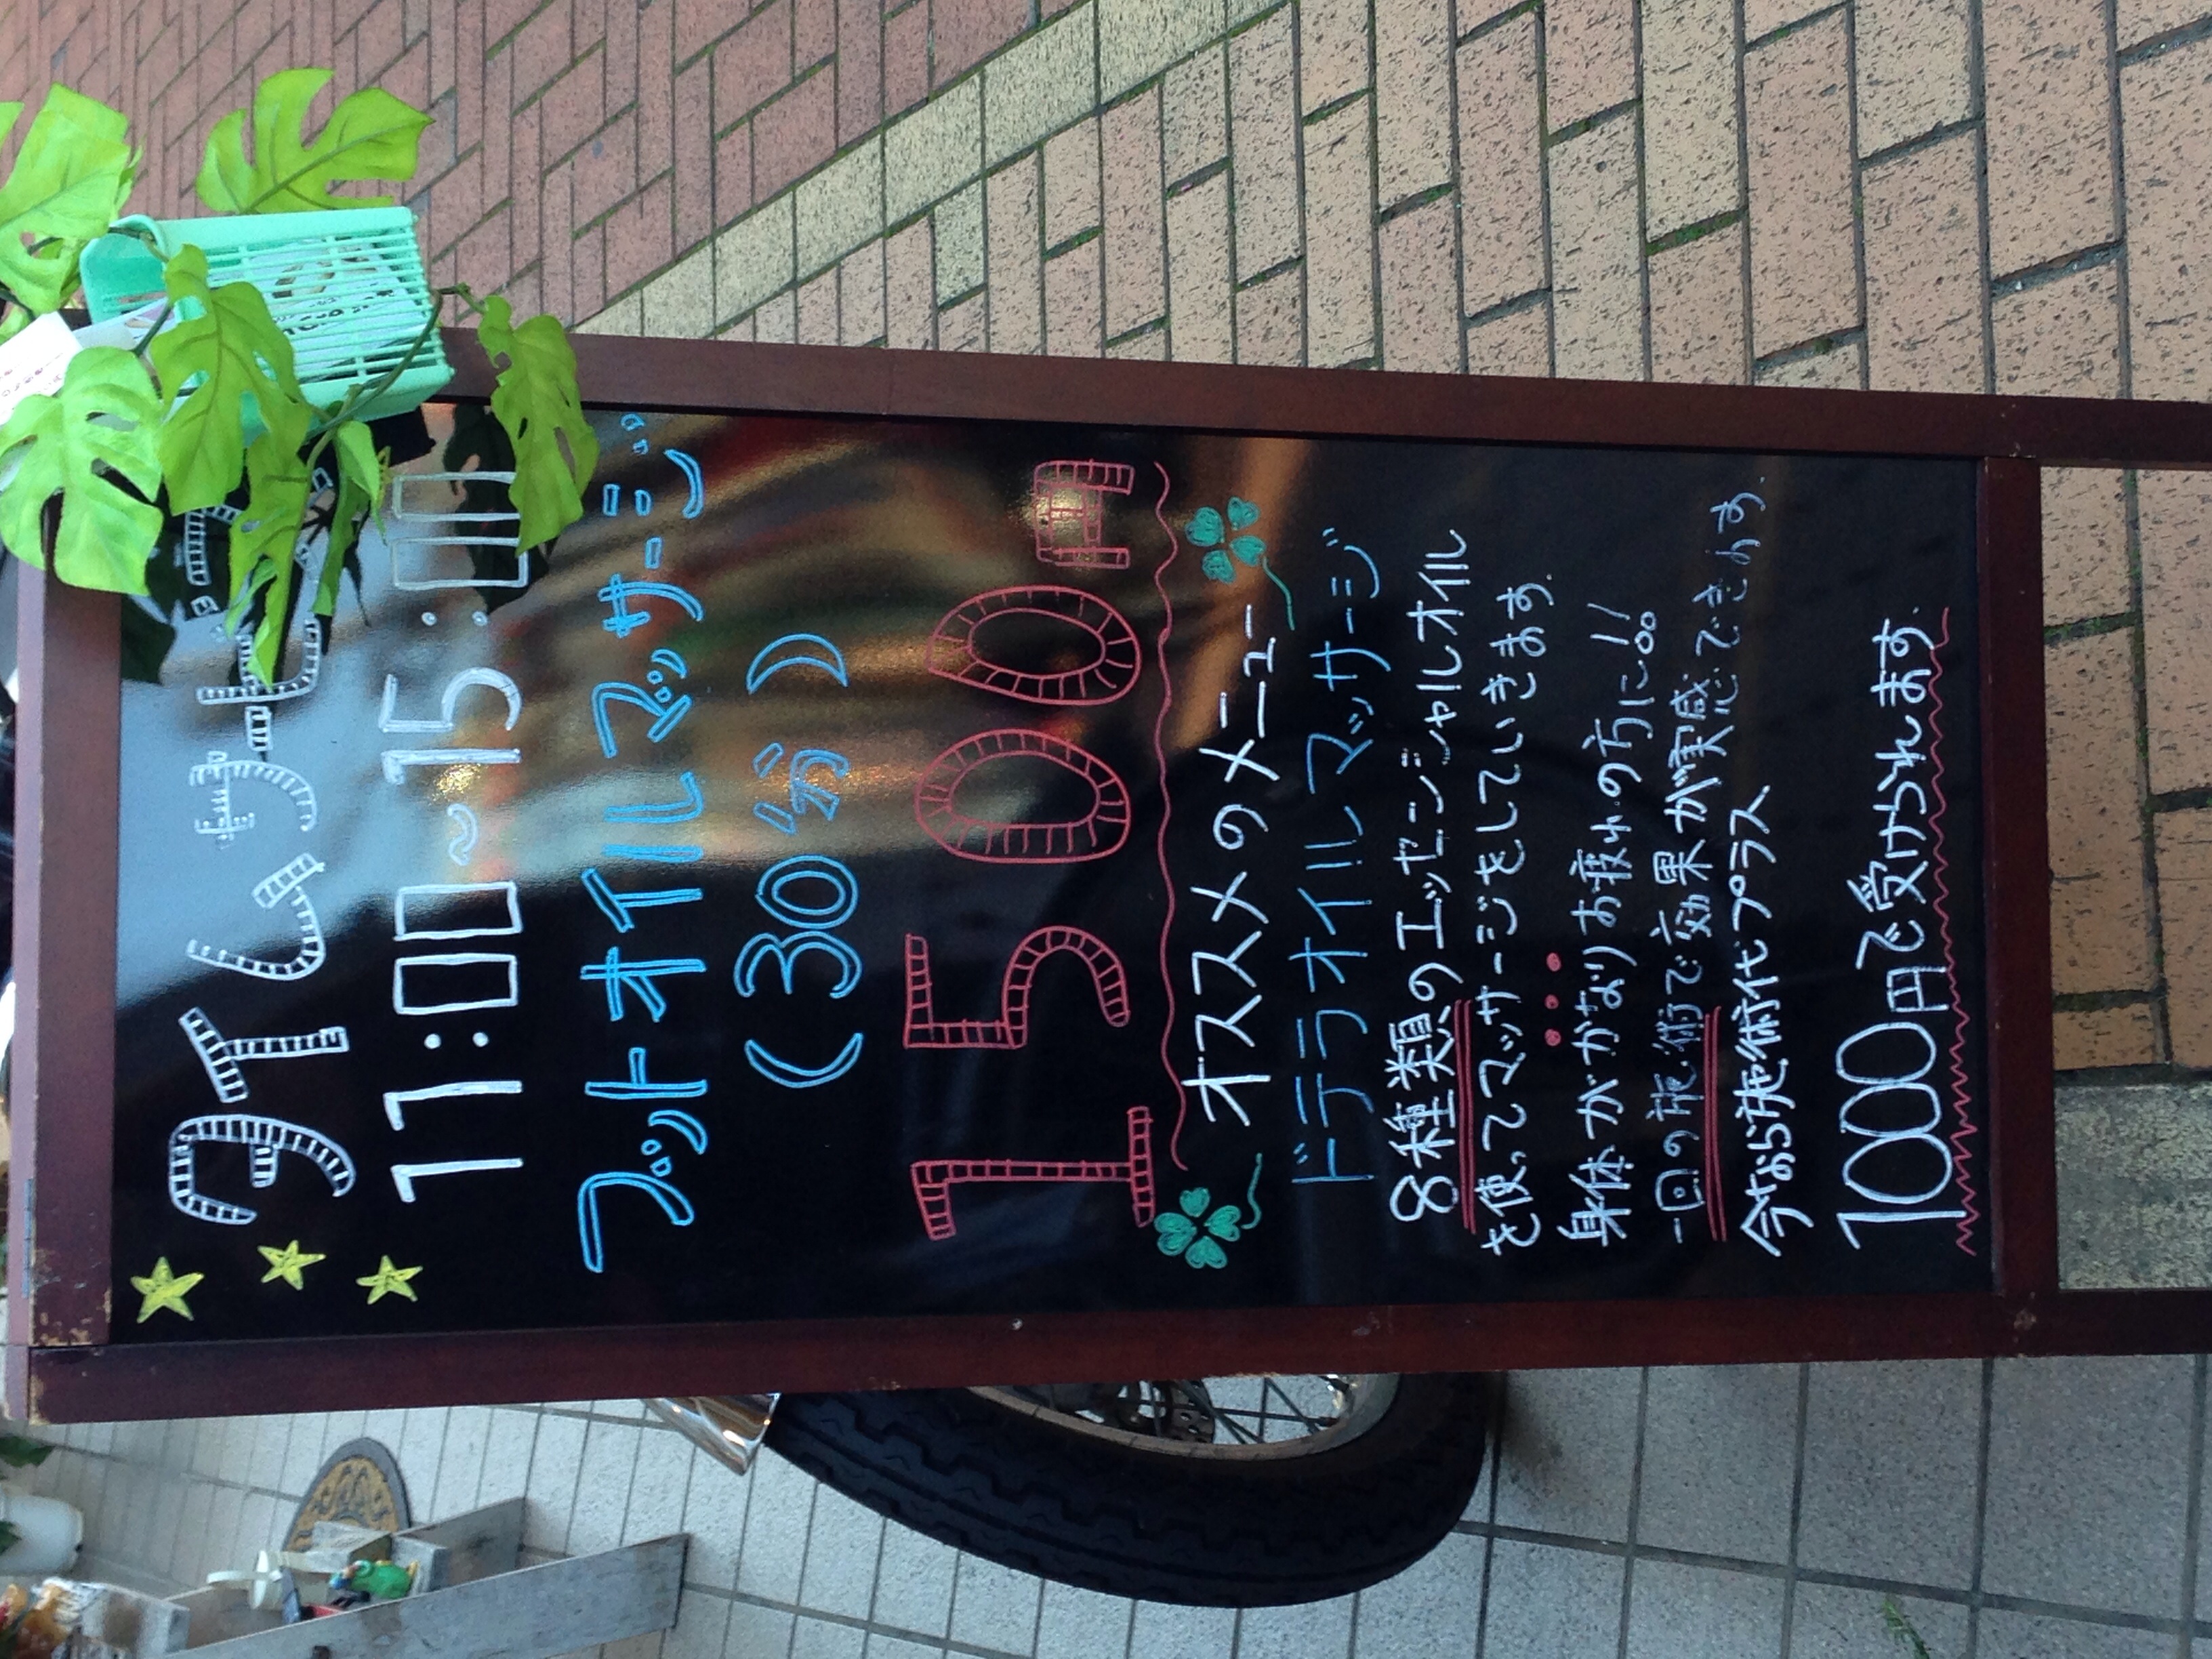 タイムサービス
11:00~15:00
フットオイルマッサージ
(30分)
1500円
オススメのメニュー
ドテラオイルマッサージ
8種類のエッセンシャルオイル
を使ってマッサージをしていきます。
身体がかなりお疲れの方に!!
一回の施術で効果が実感できます。
今なら施術代プラス
1000円で受けられます。